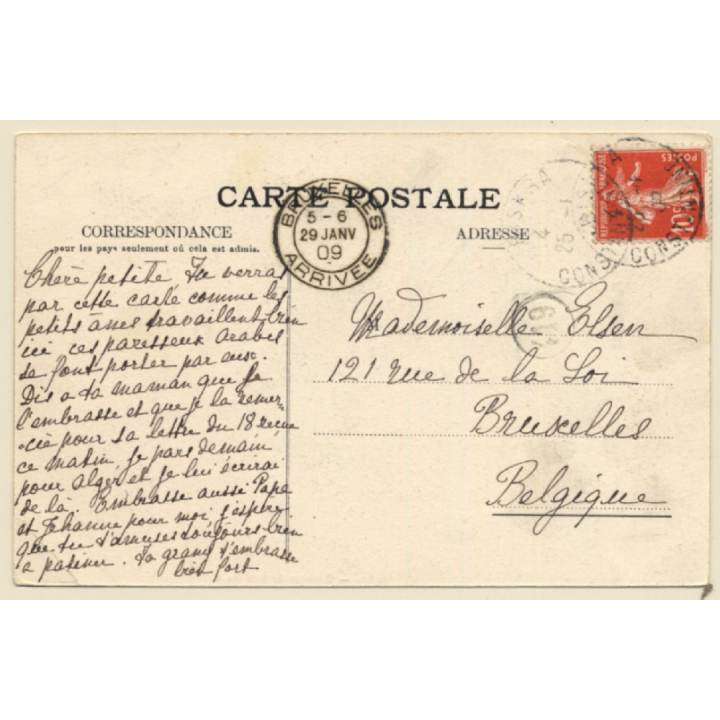 CARTE POSTALE
CORRESPONDANCE
pour les pays seulement où cela est admis.
ADRESSE
BRUXELLES
5-6
29 JANV
09
ARRIVÉE
BISKRA
4
25
CONS
CONS
POSTES
10
119
Chère petite Tu verras
par cette carte comme les
petits ânes travaillent bien
ici ces paresseux arabes
se font porter par eux.
Dis a ta maman que je
l'embrasse et que je la remer
-cie pour sa lettre du 18 reçue
ce matin, je pars demain
pour alger et je lui écrirai
de là Embrasse aussi Papa
et Jehanne pour moi, j'espère
que tu t'amuses toujours bien
a patiner. ta grand t'embrasse
bien fort
Mademoiselle Elsen
121 rue de la Loi
Bruxelles
Belgique